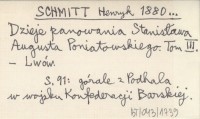 SCHMITT Henryk 1880...
Dzieje panowania Stanisława
Augusta Poniatowskiego. Tom III.
- Lwów.
S. 91: górale z Podhala
w wojsku Konfederacji Barskiej.